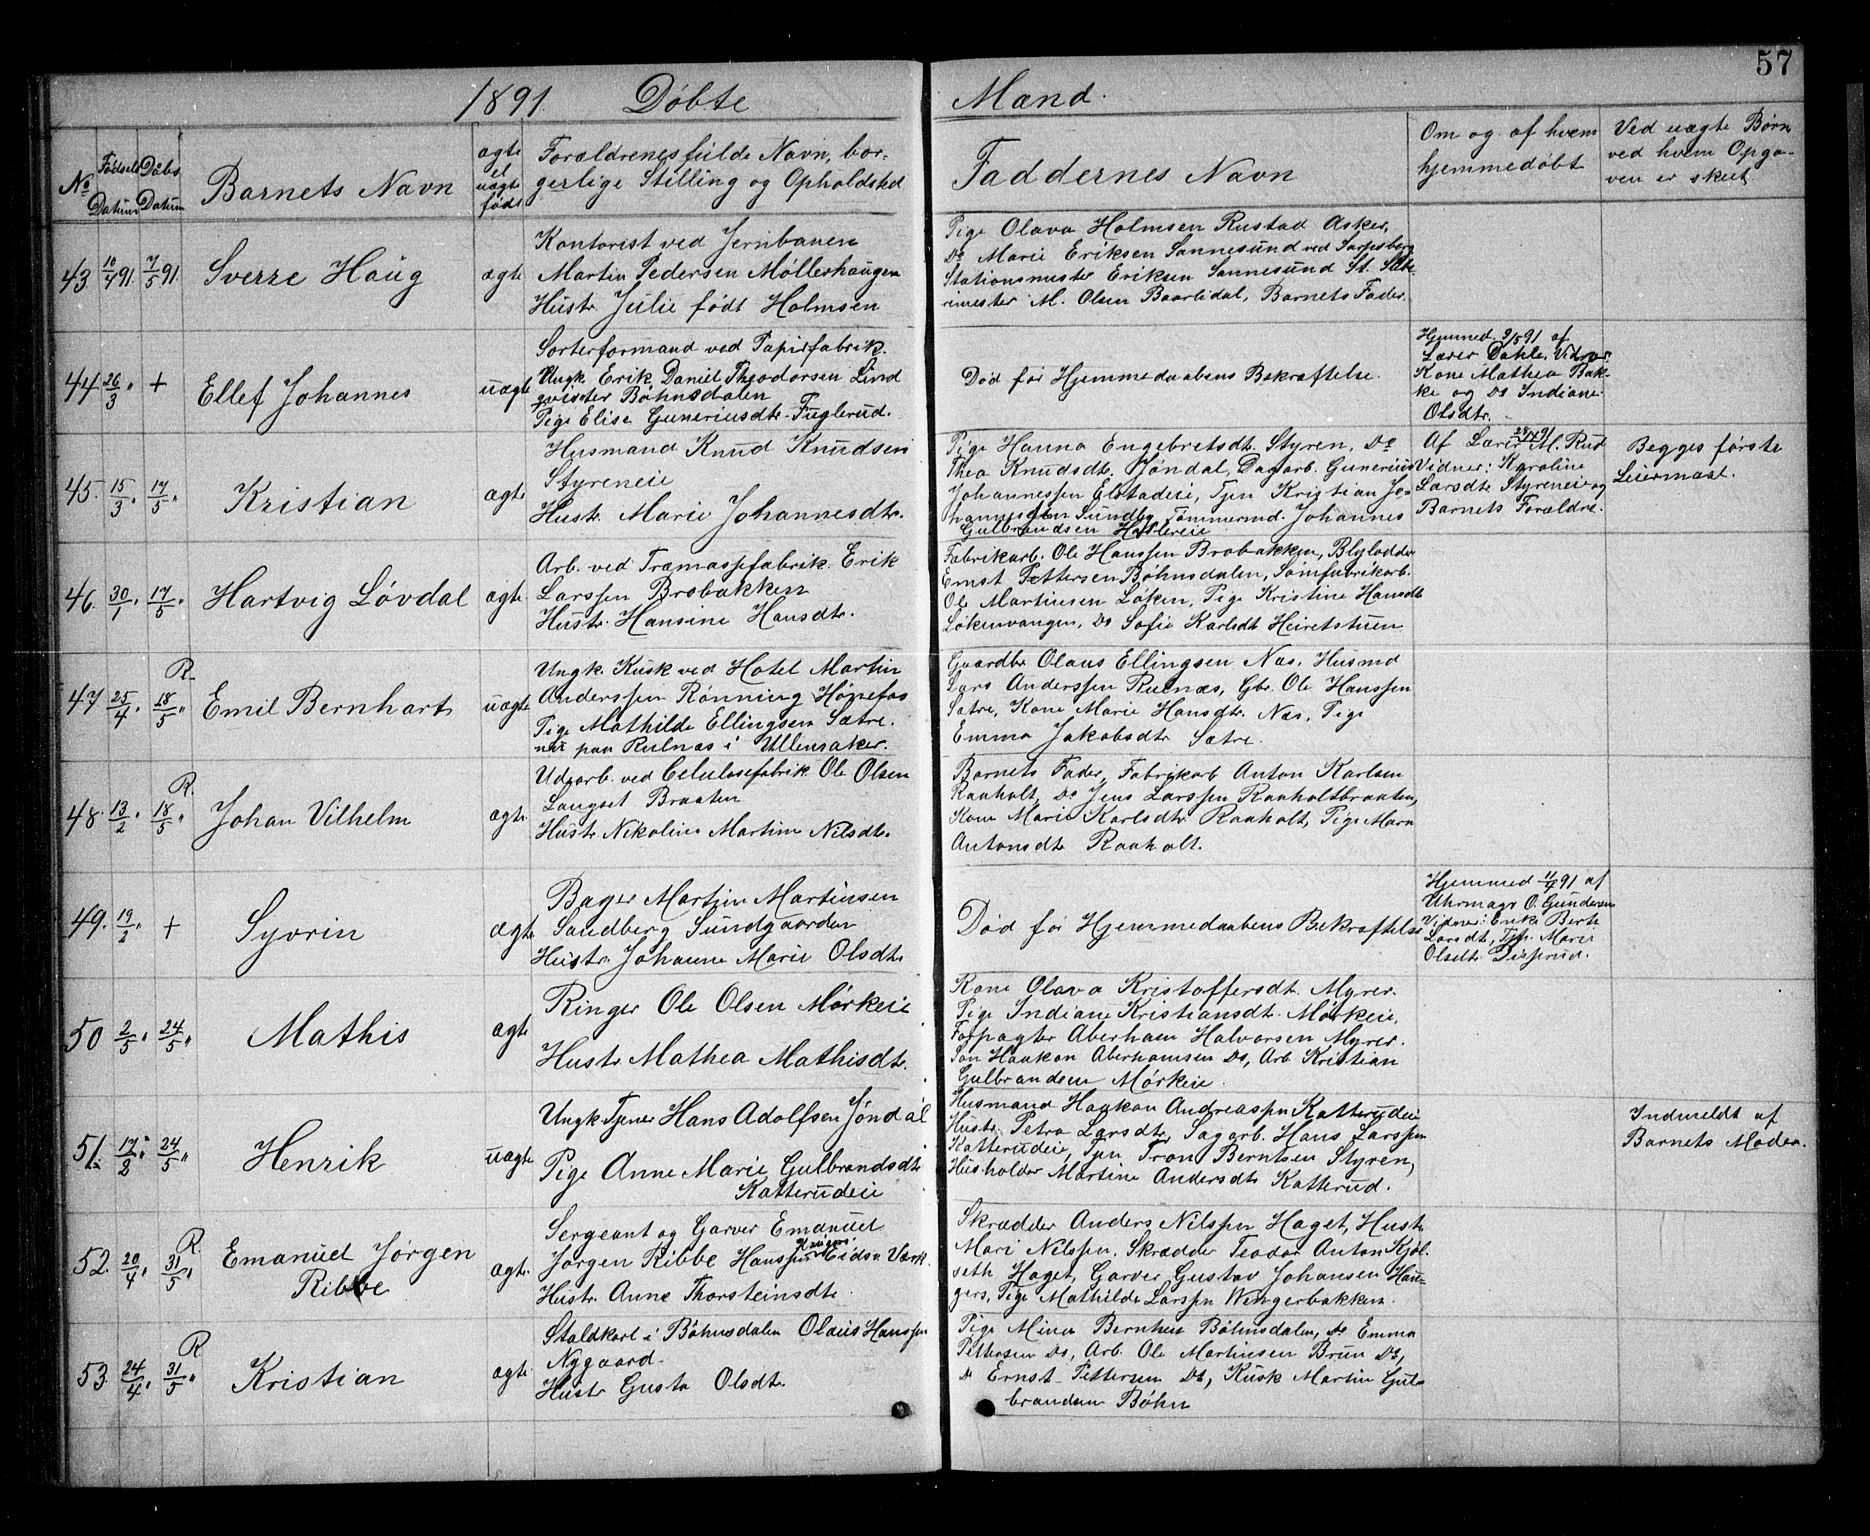 57
1891. Døbte Mænd.
No
Fødsels Datum
Døbs Datum
Barnets Navn
ægte el uægte født
Forældrenes fulde Navn, bor-
gerlige Stilling og Opholdsted
Faddernes Navn
Om og af hvem
hjemmedøbt
Ved uægte Børn
ved hvem Opga-
ven er skeet.
43 10/4 91 7/5 91 Sverre Haug ægte
Kontorist ved Jernbanen
Martin Pedersen Møllerhaugen
Hustr. Julie født Holmsen
Pige Olava Holmsen Rustad Asker,
Do Marie Eriksen Sannesund ved Sarpsborg
Stationsmester Eriksen Sannesund St.
M. Olsen Baarlidal, Barnets Fader.
44 26/3 " + Ellef Johannes uægte
Sorterformand ved Papirfabrik.
Ungk. Erik Daniel Theodorsen Lind
qvister Bøhnsdalen
Pige Elise Guneriusdtr. Fuglerud.
Død før Hjemmedaabens Bekræftelse.
Hjemmed. 9/5 91 af
Lærer Dahle. Vidner
Kone Mathea Bak-
ke og Do Indiane
Olsdtr.
45. 15/3 " 17/5 " Kristian ægte
Husmand Knud Knudsen
Styreneie
Hustr. Marie Johannesdtr.
Pige Hanna Engebretsdt. Styren, Do
Thea Knudsdt. Jøndal, Dagarb. Gunerius
Johannessen Elstadeie, Tjen Kristian Jo-
hannessen Sundby, Tømmermd. Johannes
Gulbrandsen
28/4 91
Af Lærer M. Rud
Vidner: Karoline
Larsdtr Styreneie og
Barnets Forældre.
Begges første
Leiermaal.
46. 30/1 " 17/5 " Hartvig Løvdal ægte
Arb. ved Træmassefabrik Erik
Larssen Brobakken
Hustr. Hansine Hansdtr.
Fabrikarb. Ole Hanssen Brobakken, Blylodder
Ernst Pettersen Bøhnsdalen, Sømfabrikarb.
Ole Martinsen Løken, Pige Kristine Hansdt
Løkenvangen, Do Sofie Karlsdt Heiretstuen
47 25/4 " R. 18/5 " Emil Bernhart uægte
Ungk. Kusk ved Hotel Martin
Anderssen Rønning Hønefos
Pige Mathilde Ellingsen Sætre.
nu paa Rulnæs i Ullensaker.
Gaardbr Olaus Ellingsen Næs, Husmd
Lars Anderssen Rulnæs, Gbr. Ole Hanssen
Sætre, Kone Marie Hansdtr. Næs, Pige
Emma Jakobsdtr Sætre.
48. 13/2 " R. 18/5 " Johan Vilhelm ægte
Udearb. ved Celulosefabrik Ole Olsen
Langset Braaten
Hustr Nikoline Martine Nilsdtr.
Barnets Fader, Fabrikarb Anton Karlsen
Raaholt, Do Jens Larssen Raaholtbraaten,
Kone Marie Karlsdtr. Raaholt, Pige Maren
Antonsdtr Raaholt.
49. 19/2 " + Syvrin ægte
Bager Martin Martinsen
Sandberg Sundgaarden
Hustr. Johanne Marie Olsdtr.
Død før Hjemmedaabens Bekræftelse
Hjemmed 11/4 91 af
Uhrmager O. Gundersen
Vidner: Enke Berte
Larsdtr, Marie
Olsdtr.
50 2/5 " 24/5 " Mathis ægte
Ringer Ole Olsen Mørkeie
Hustr Mathea Mathisdtr.
Kone Olava Kristoffersdt. Myrer.
Pige Indiane Kristiansdt. Mørkeie,
Forpagter Aberham Halvorsen Myrer.
Søn Haakon Aberhamsen Do, Arb. Kristian
Gulbrandsen Mørkeie.
51. 17/2 " 24/5 " Henrik uægte
Ungk Tjener Hans Adolfsen Jøndal
Pige Anne Marie Gulbrandsdt
Katterudeie
Husmand Haakon Andreassen Katterudeie
Hustr. Petra Larsdtr, Sagarb. Hans Larssen
Katterudeie, Tjen Tron Berntsen Styren,
Husholder Martine Andersdtr Katterud.
Indmeldt af
Barnets Moder.
52. 20/4 " R. 31/5 " Emanuel Jørgen
Ribbe ægte
Sergeant og Garver Emanuel
Jørgen Ribbe Hanssen Eidsv. Værk.
Hustr. Anne Thorsteinsdtr.
Skrædder Anders Nilssen Haget, Hustr
Mari Nilssen, Skrædder Teodor Anton Kjøl-
seth Haget, Garver Gustav Johansen Hau-
gers, Pige Mathilde Larssen Wengerbakken.
53 24/4 " R 31/5 " Kristian ægte
Staldkarl i Bøhnsdalen Olaus Hanssen
Nygaard.
Hustr Gusta Olsdtr.
Pige Mina Bernhus Bøhnsdalen, Do Emma
Pettersen Do, Arb. Ole Martinsen Brun Do,
Do Ernst Pettersen Do, Kusk Martin Gul-
brandsen Bøhn